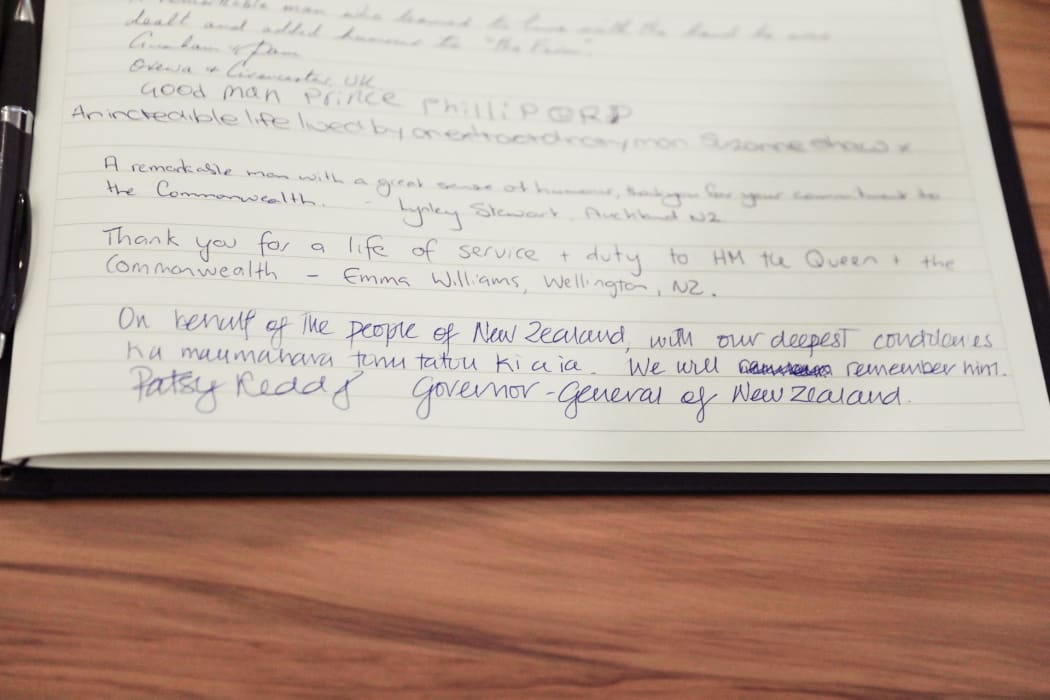 remarkable man who learned to live with the hand he was
dealt and added humour to "the Firm"
Graham & Pam
Orewa & Cirencester, UK
Good man Prince Phillip RP
An incredible life lived by an extraordinary man Suzanne Shaw x
A remarkable man with a great sense of humour, thankyou for your commitment to
the Commonwealth. - Lynley Stewart, Auckland NZ
Thank you for a life of service + duty to HM the Queen + the
Commonwealth - Emma Williams, Wellington, NZ.
On behalf of the people of New Zealand, with our deepest condolences
Ka maumahara tonu tatou ki a ia. We will remember him.
Patsy Reddy Governor-General of New Zealand.